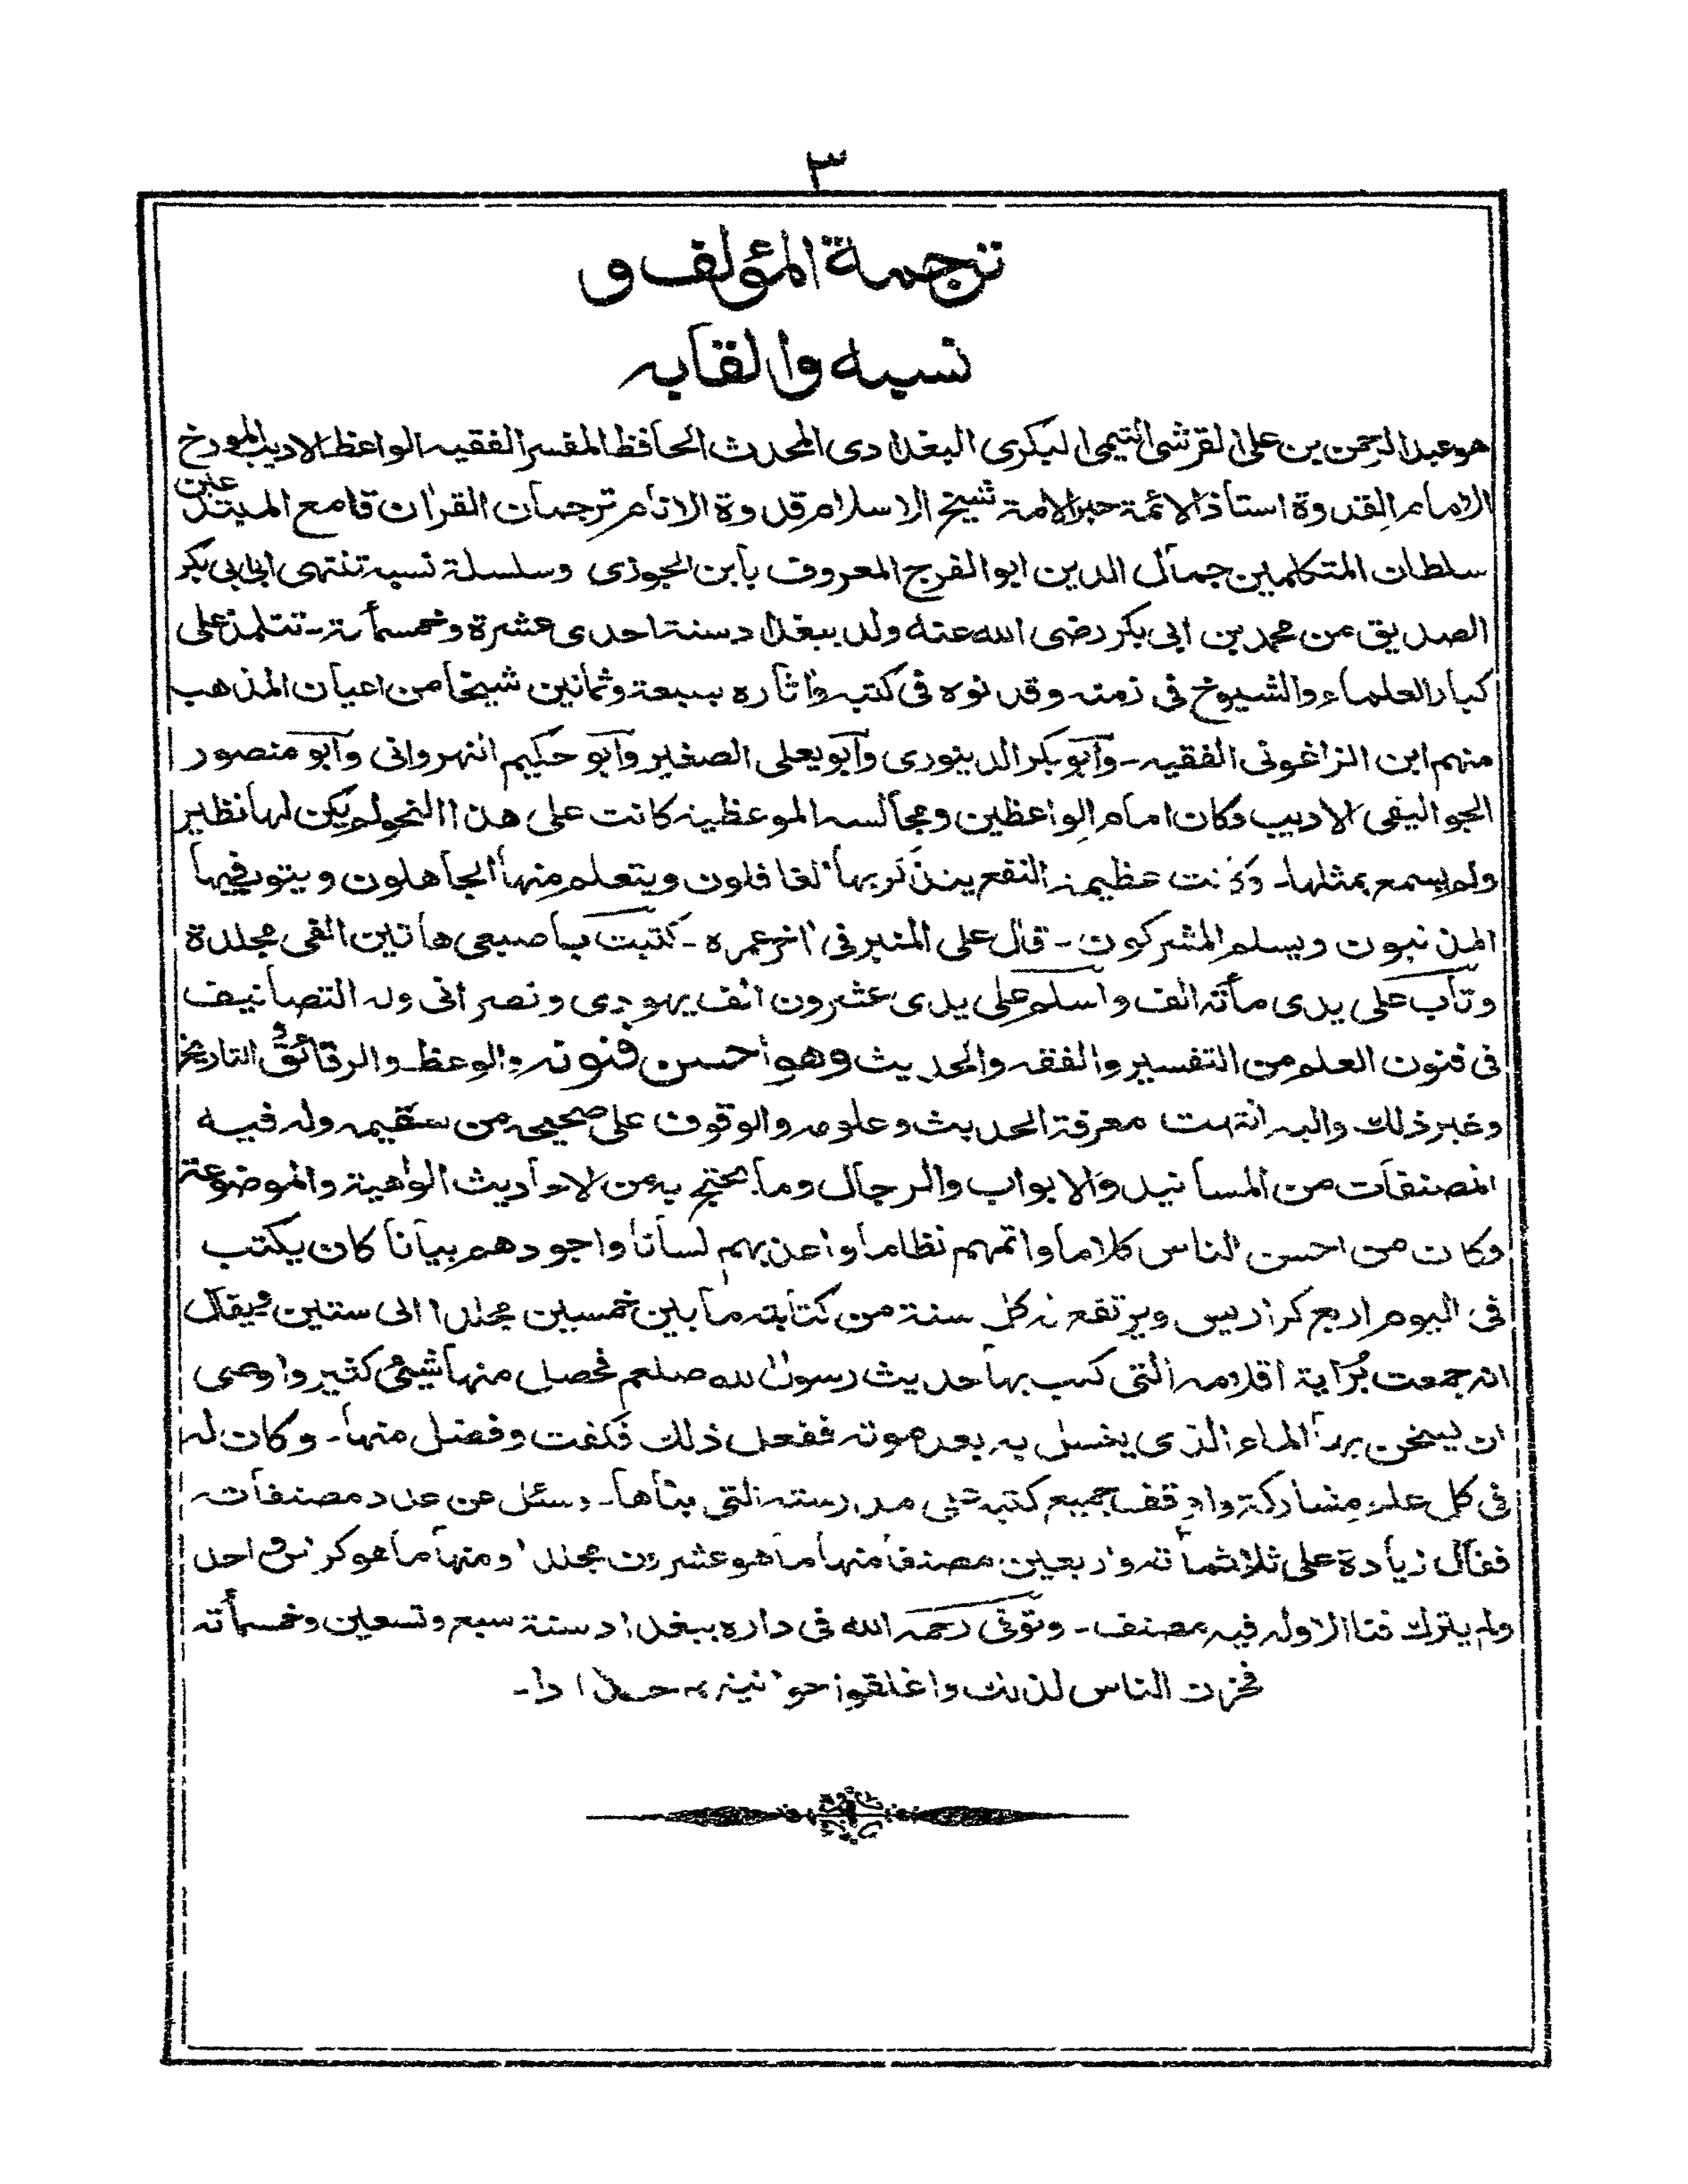 ٣
ترجمة المؤلف و
نسبه والقابه
هو عبد الرحمن بن على القرشى التيمى البكرى البغدادى المحدث الحافظ المفسر الفقيه الواعظ الاديب المورخ
الامام القدوة استاذ الائمة حبر الامة شيخ الاسلام قدوة الانام ترجمان القرآن قامع المبتدعين
سلطان المتكلمين جمال الدين ابو الفرج المعروف بابن الجوزى وسلسلة نسبه تنتهى الى ابى بكر
الصديق من محمد بن ابى بكر رضى الله عنه ولد ببغداد سنة احدى عشرة وخمسمأته - تتلمذ على
كبار العلماء والشيوخ فى زمنه وقد نوه فى كتبه واثاره بسبعة وثمانين شيخا من اعيان المذهب
منهم ابن الزاغونى الفقيه - وابو بكر الدينورى وابو يعلى الصغير وابو حكيم النهروانى وابو منصور
الجواليقى الاديب وكان امام الواعظين ومجالسه الموعظية كانت على هذا النحو لم يكن لها نظير
ولم يسمع بمثلها - وكانت عظيمة النفع يتذكر بها الغافلون ويتعلم منها الجاهلون ويتوب فيها
المذنبون ويسلم المشركون - قال على المنبر فى اخر عمره - كتبت باصبعى هاتين الفى مجلدة
وتاب على يدى مأته الف واسلم على يدى عشرون الف يهودى ونصرانى وله التصانيف
فى فنون العلم من التفسير والفقه والحديث وهو احسن فنونه والوعظ والرقائق والتاريخ
وغير ذلك واليه انتهت معرفة الحديث وعلومه والوقوف على صحيحه من سقيمه وله فيه
المصنفات من المسانيد والابواب والرجال وما يحتج به من الاحاديث الواهية والموضوعة
وكان من احسن الناس كلاما واتمهم نظاما واعذبهم لسانا واجودهم بيانا كان يكتب
فى اليوم اربع كراريس ويرتفع له كل سنة من كتابته ما بين خمسين مجلدا الى ستين ويقال
انه جمعت بُراية اقلامه التى كتب بها حديث رسول الله صلعم فحصل منها شيئ كثير واوصى
ان يسخن بها الماء الذى يغسل به بعد موته ففعل ذلك فكفت وفضل منها - وكان له
فى كل علم مشاركة واوقف جميع كتبه على مدرسته التى بناها - وسئل عن عدد مصنفاته
فقال زيادة على ثلاثمأته واربعين مصنفا منها ما هو عشرون مجلدا ومنها ما هو كراس واحد
ولم يترك فنا الا وله فيه مصنف - وتوفى رحمه الله فى داره ببغداد سنة سبع وتسعين وخمسمأته
فحزن الناس لذلك واغلقوا حوانيتهم حدادا -